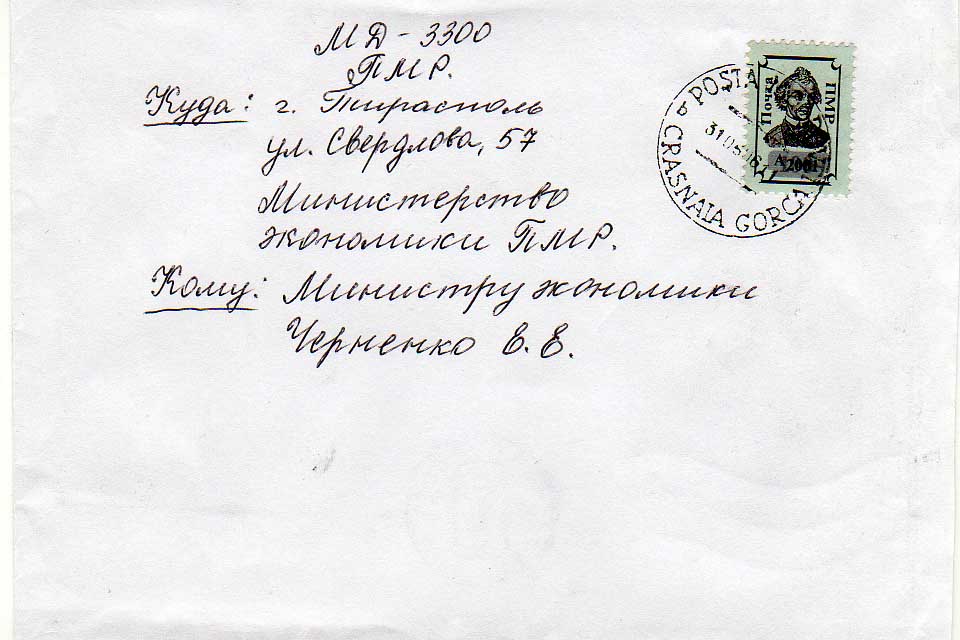 МД-3300
ПМР.
Куда: г. Тирасполь
ул. Свердлова, 57
Министерство
экономики ПМР.
Кому: Министру экономики
Черненко Е. Е.
POSTA
CRASNAIA GORCA
Почта
ПМР
2001